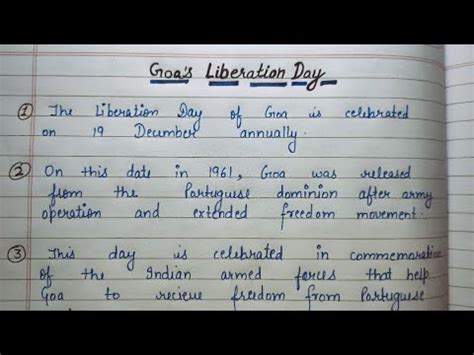 Goa's Liberation Day
① The Liberation Day of Goa is celebrated
on 19 December annually.
② On this date in 1961, Goa was released
from the Portuguese dominion after army
operation and extended freedom movement.
③ This day is celebrated in commemoration
of the Indian armed forces that help
Goa to recieve freedom from Portuguese